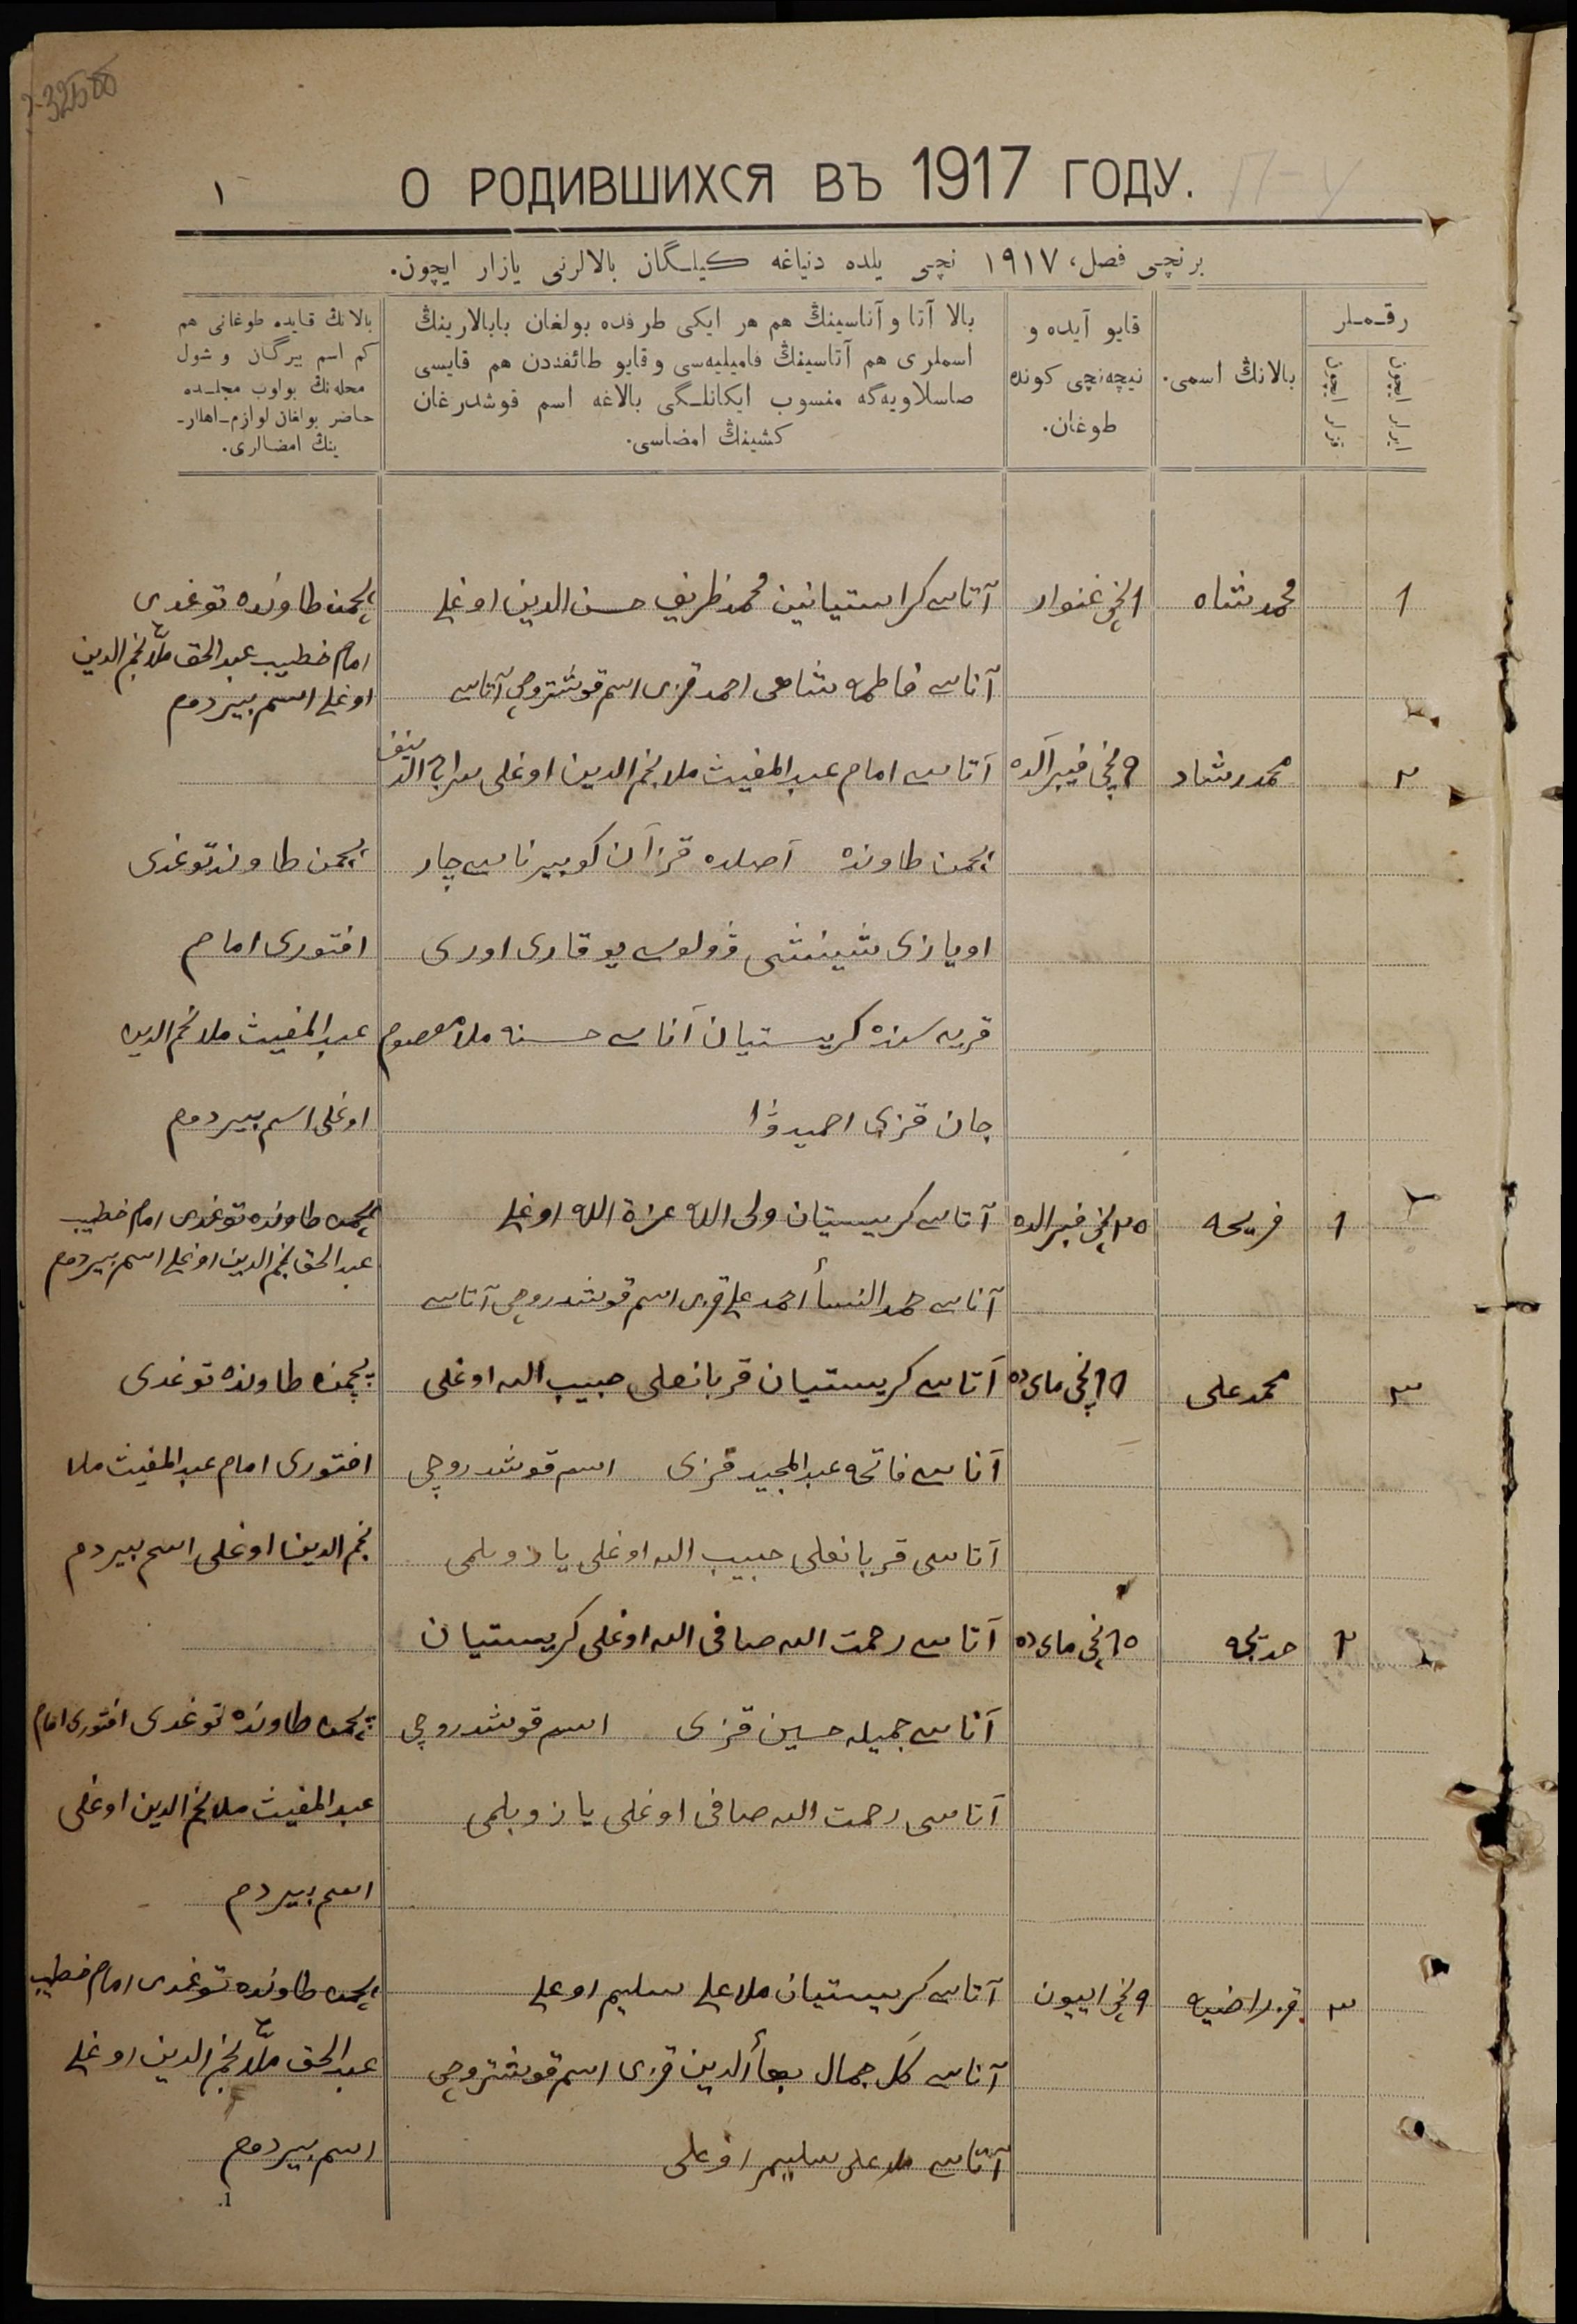 О РОДИВШИХСЯ ВЪ 1917 ГОДУ.
١
برنچی فصل، ١٩١٧ نچی یلده دنیاغه کیلگان بالالرنی یازار ایچون.
رقملر
ایرلر ایچون
قزلر ایچون
بالانڭ اسمی.
قایو آیده و
نیچەنچی کونده
طوغان.
بالا آتا و آناسینڭ هم هر ایکی طرفده بولغان بابالارینڭ
اسملری هم آتاسینڭ فامیلیه‌سی و قایو طائفه‌دن هم قایسی
صاسلاویه‌گه منسوب ایکانلگی بالاغه اسم قوشدرغان
کشینڭ امضاسی.
بالانڭ قایده طوغانی هم
کم اسم بیرگان و شول
محله‌نڭ بولوب مجلسده
حاضر بولغان لوازم اهلار-
ینڭ امضالری.
1 محمدشاه 1 نچی غنوار آتاسی کراستیانین محمدظریف حسن الدین اوغلی
آناسی فاطمه شاهی احمد قزی اسم قوشتروچی آتاسی
چمن طاونده توغدی
امام خطیب عبدالحق ملا نجم الدین
اوغلی اسم بیردوم
٢ محمد رشاد 9 نچی فیبرالده آتاسی امام عبدالمغیث ملا نجم الدین اوغلی سراج الدینف
چمن طاونده آصلده قزآن کوبیرناسی چار
اویازی شینشی ڤولوسی یوقاری اوری
قریه سنده کریستیان آناسی حسنه ملا معصوم
جان قزی احمیدوا
چمن طاونده توغدی
افتوری امام
عبدالمغیث ملا نجم الدین
اوغلی اسم بیردوم
1 فریحه ٢٥ نچی فیبرالده آتاسی کریستیان ولی الله عزة الله اوغلی
آناسی حمد النسأ احمد علی قزی اسم قوشدروچی آتاسی
چمن طاونده توغدی امام خطیب
عبدالحق نجم الدین اوغلی اسم بیردوم
٣ محمد علی نچی مای ده آتاسی کریستیان قربانعلی حبیب الله اوغلی
آناسی فاتحه عبدالمجید قزی اسم قوشدروچی
آتاسی قربانعلی حبیب الله اوغلی یازو بلمی
چمن طاونده توغدی
افتوری امام عبدالمغیث ملا
نجم الدین اوغلی اسم بیردم
٢ خدیجه 1٥ نچی مای ده آتاسی رحمت الله صافی الله اوغلی کریستیان
آناسی جمیله حسین قزی اسم قوشدروچی
آتاسی رحمت الله صافی اوغلی یازو بلمی
چمن طاونده توغدی افتوری امام
عبدالمغیث ملا نجم الدین اوغلی
اسم بیردم
٣ راضیه 9 نچی اییون آتاسی کریستیان ملا علی سلیم اوغلی
آناسی کل جمال بهأالدین قزی اسم قوشتروچی
آتاسی ملا علی سلیم اوغلی
چمن طاونده توغدی امام خطیب
عبدالحق ملا نجم الدین اوغلی
اسم بیردوم
1.